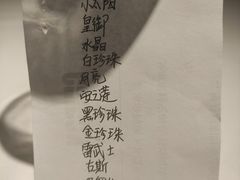 小太阳
皇御
水晶
白珍珠
月亮
西之莲
黑珍珠
金珍珠
雷武士
古斯